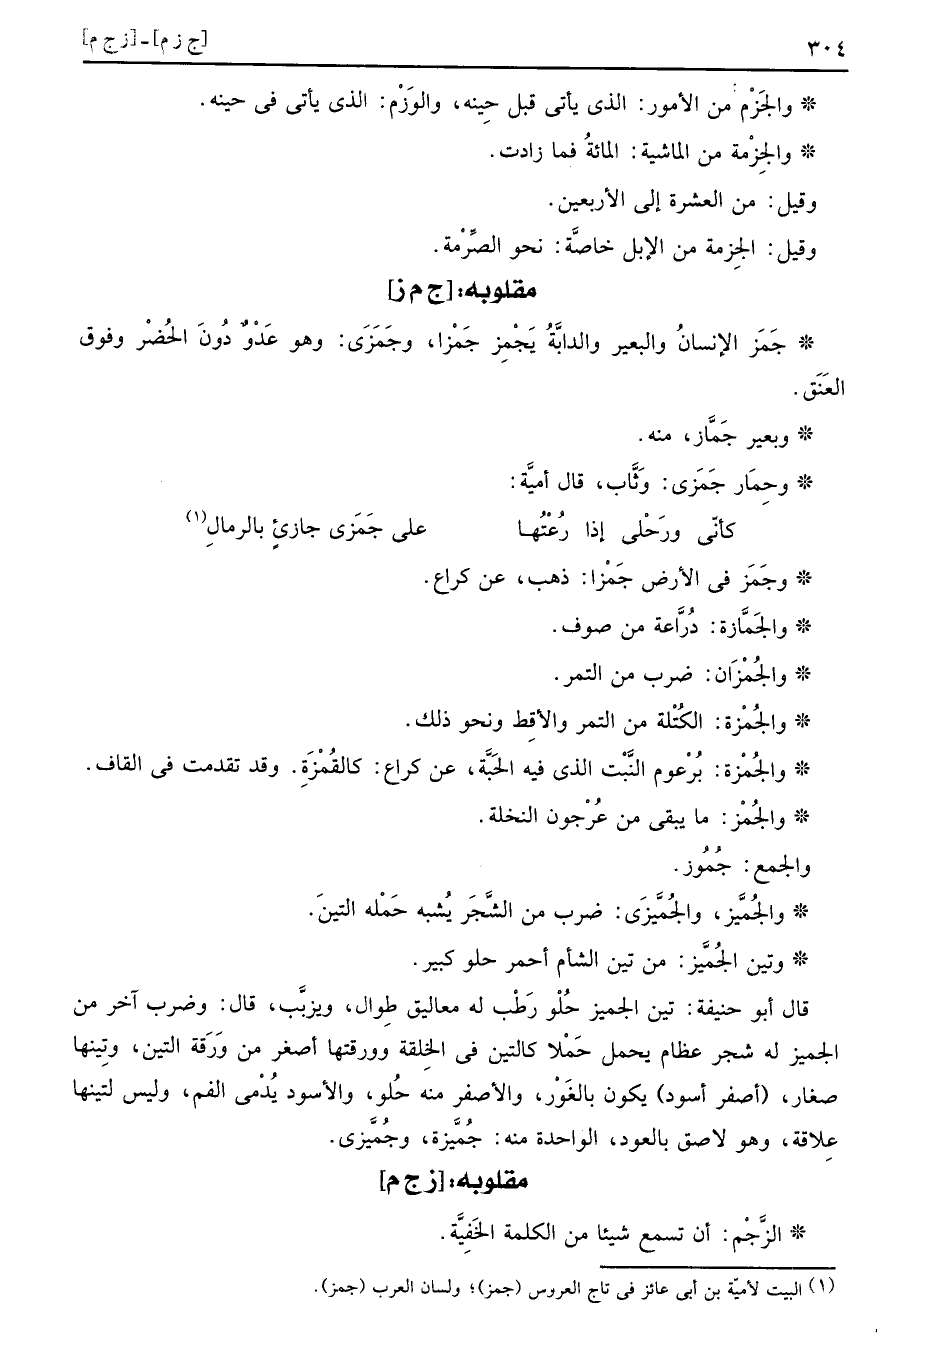 ٣٠٤ [ج ز م]-[ز ج م]
* والجَزْم من الأمور: الذى يأتى قبل حِينه، والوَزْم: الذى يأتى فى حينه.
* والجِزْمة من الماشية: المائةُ فما زادت.
وقيل: من العشرة إلى الأربعين.
وقيل: الجِزمة من الإبل خاصَّة: نحو الصِّرْمة.
مقلوبه: [ج م ز]
* جَمَز الإنسانُ والبعير والدابَّةُ يَجْمِز جَمْزا، وجَمَزَى: وهو عَدْوٌ دُونَ الحُضْر وفوق
العَنَق.
* وبعير جَمَّاز، منه.
* وحِمَار جَمَزى: وَثَّاب، قال أميَّة:
كأنّى ورَحْلى إذا رُعْتُها على جَمَزى جازئٍ بالرمالِ(١)
* وجَمَز فى الأرض جَمْزا: ذهب، عن كراع.
* والجَمَّازة: دُرَّاعة من صوف.
* والجُمْزَان: ضرب من التمر.
* والجُمْزة: الكُتْلة من التمر والأقِط ونحو ذلك.
* والجُمْزة: بُرْعوم النَّبْت الذى فيه الحَبَّة، عن كراع: كالقُمْزَة. وقد تقدمت فى القاف.
* والجُمْز: ما يبقى من عُرْجون النخلة.
والجمع: جُمُوز.
* والجُمَّيز، والجُمَّيزَى: ضرب من الشَّجَر يُشبه حَمْله التينَ.
* وتين الجُمَّيز: من تين الشأم أحمر حلو كبير.
قال أبو حنيفة: تين الجميز حُلْو رَطْب له معاليق طِوال، ويزبَّب، قال: وضرب آخر من
الجميز له شجر عظام يحمل حَمْلا كالتين فى الخِلقة وورقتها أصغر من وَرَقة التين، وتِينها
صغار، (أصفر أسود) يكون بالغَوْر، والأصفر منه حُلو، والأسود يُدْمى الفم، وليس لتينها
عِلاقة، وهو لاصق بالعود، الواحدة منه: جُمَّيزة، وجُمَّيزى.
مقلوبه: [ز ج م]
* الزَّجْم: أن تسمع شيئا من الكلمة الخَفِيَّة.
(١) البيت لأميّة بن أبى عائز فى تاج العروس (جمز)؛ ولسان العرب (جمز).